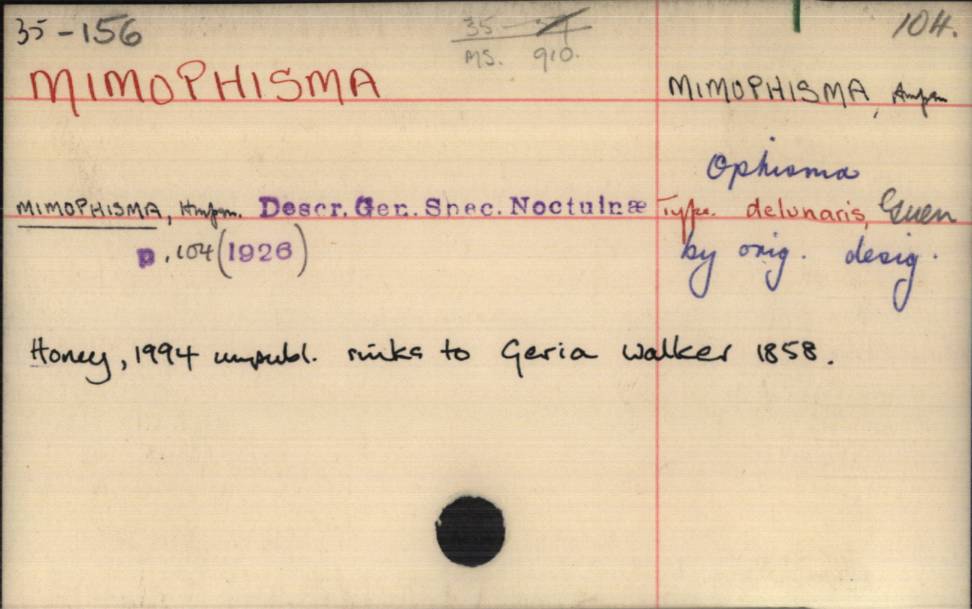 35-156
35
MS. 910.
104.
MIMOPHISMA
MIMOPHISMA, Hmpsn
Ophisma
MIMOPHISMA, Hmpsn. Descr. Gen. Spec. Noctuinæ
Type. delunaris, Guen
p. 104 (1926)
by orig. desig.
Honey, 1994 unpubl. sinks to Geria Walker 1858.